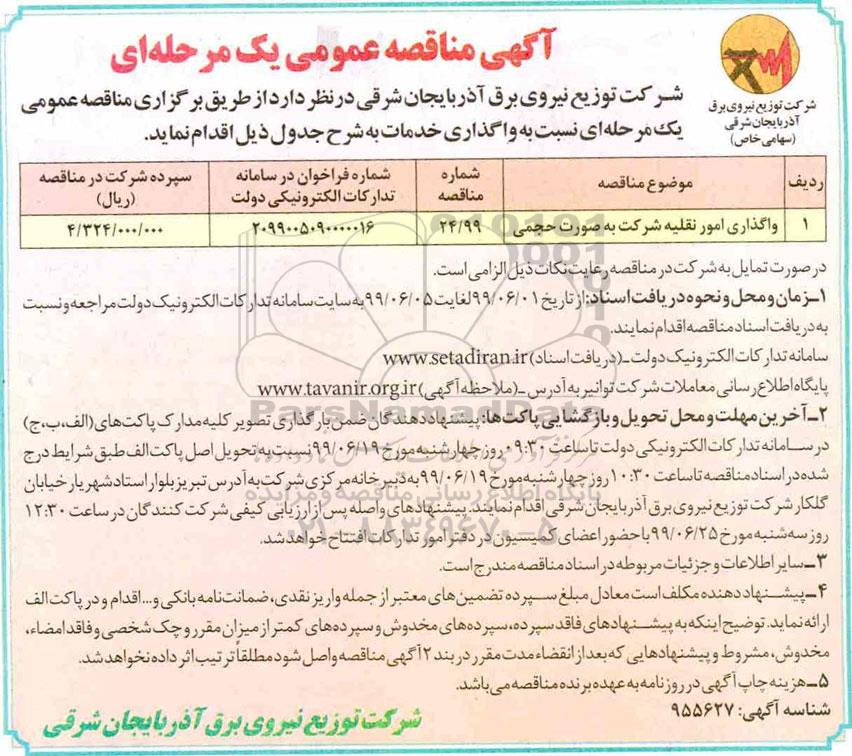 آگهی مناقصه عمومی یک مرحله‌ای
شرکت توزیع نیروی برق
آذربایجان شرقی
(سهامی خاص)
شرکت توزیع نیروی برق آذربایجان شرقی در نظر دارد از طریق برگزاری مناقصه عمومی
یک مرحله‌ای نسبت به واگذاری خدمات به شرح جدول ذیل اقدام نماید.
ردیف | موضوع مناقصه | شماره مناقصه | شماره فراخوان در سامانه تدارکات الکترونیکی دولت | سپرده شرکت در مناقصه (ریال)
۱ | واگذاری امور نقلیه شرکت به صورت حجمی | ۲۴/۹۹ | ۲۰۹۹۰۰۵۰۹۰۰۰۰۰۱۶ | ۴/۳۲۴/۰۰۰/۰۰۰
در صورت تمایل به شرکت در مناقصه رعایت نکات ذیل الزامی است.
۱ـ زمان و محل و نحوه دریافت اسناد: از تاریخ ۹۹/۰۶/۰۱ لغایت ۹۹/۰۶/۰۵ به سایت سامانه تدارکات الکترونیک دولت مراجعه و نسبت
به دریافت اسناد مناقصه اقدام نمایند.
سامانه تدارکات الکترونیک دولت ـ (دریافت اسناد) www.setadiran.ir
پایگاه اطلاع رسانی معاملات شرکت توانیر به آدرس ـ (ملاحظه آگهی) www.tavanir.org.ir
۲ـ آخرین مهلت و محل تحویل و بازگشایی پاکت‌ها: پیشنهاد دهندگان ضمن بارگذاری تصویر کلیه مدارک پاکت‌های (الف، ب، ج)
در سامانه تدارکات الکترونیکی دولت تا ساعت ۰۹:۳۰ روز چهارشنبه مورخ ۹۹/۰۶/۱۹ نسبت به تحویل اصل پاکت الف طبق شرایط درج
شده در اسناد مناقصه تا ساعت ۱۰:۳۰ روز چهارشنبه مورخ ۹۹/۰۶/۱۹ به دبیرخانه مرکزی شرکت به آدرس تبریز بلوار استاد شهریار خیابان
گلکار شرکت توزیع نیروی برق آذربایجان شرقی اقدام نمایند. پیشنهادهای واصله پس از ارزیابی کیفی شرکت کنندگان در ساعت ۱۲:۳۰
روز سه شنبه مورخ ۹۹/۰۶/۲۵ با حضور اعضای کمیسیون در دفتر امور تدارکات افتتاح خواهد شد.
۳ـ سایر اطلاعات و جزئیات مربوطه در اسناد مناقصه مندرج است.
۴ـ پیشنهاد دهنده مکلف است معادل مبلغ سپرده تضمین‌های معتبر از جمله واریز نقدی، ضمانت نامه بانکی و... اقدام و در پاکت الف
ارائه نماید. توضیح اینکه به پیشنهادهای فاقد سپرده، سپرده‌های مخدوش و سپرده‌های کمتر از میزان مقرر و چک شخصی و فاقد امضاء،
مخدوش، مشروط و پیشنهادهایی که بعد از انقضاء مدت مقرر در بند ۲ آگهی مناقصه واصل شود مطلقا ترتیب اثر داده نخواهد شد.
۵ـ هزینه چاپ آگهی در روزنامه به عهده برنده مناقصه می‌باشد.
شناسه آگهی: ۹۵۵۶۲۷
شرکت توزیع نیروی برق آذربایجان شرقی
ParsNamadData
پایگاه اطلاع رسانی مناقصه و مزایده
۰۲۱-۸۸۳۴۹۶۷۰-۵